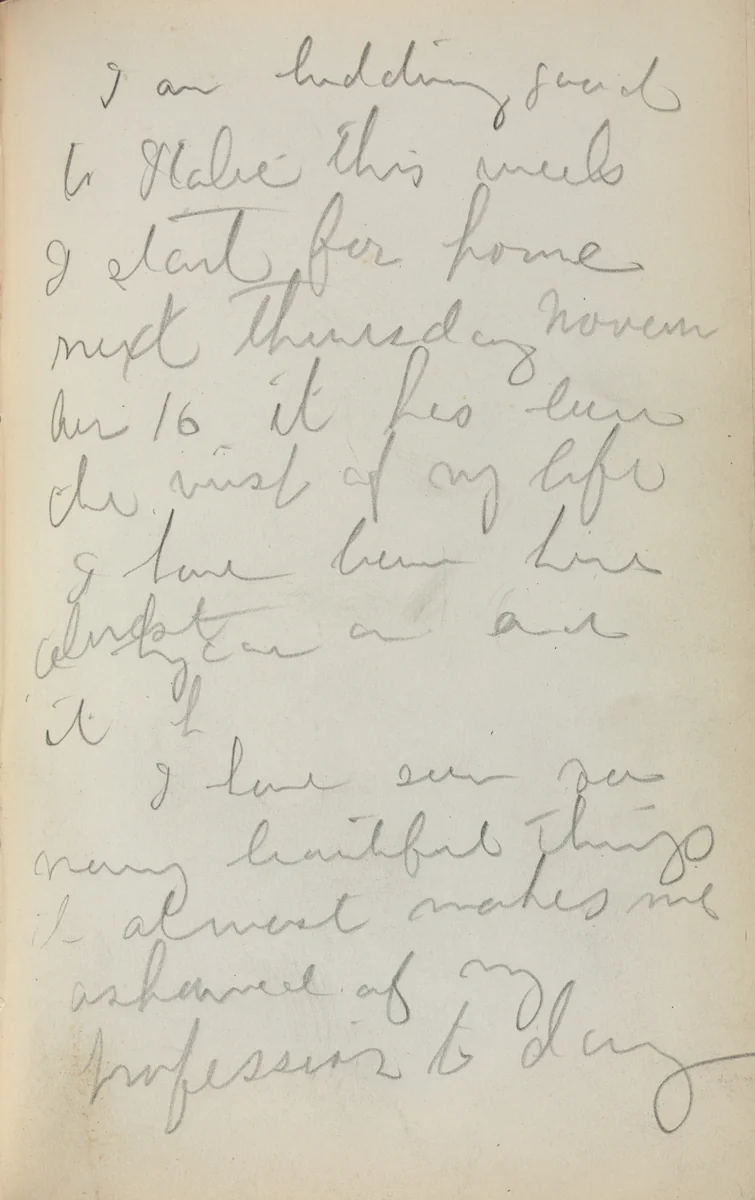 I am bidding good
to Italie this week
I start for home
next Thursday Novem
ber 16 it hes been
the visit of my life
I have been here
almost a year an and
it h
I have seen so
many beautiful things
it almost makes me
ashamed of my
profession to day